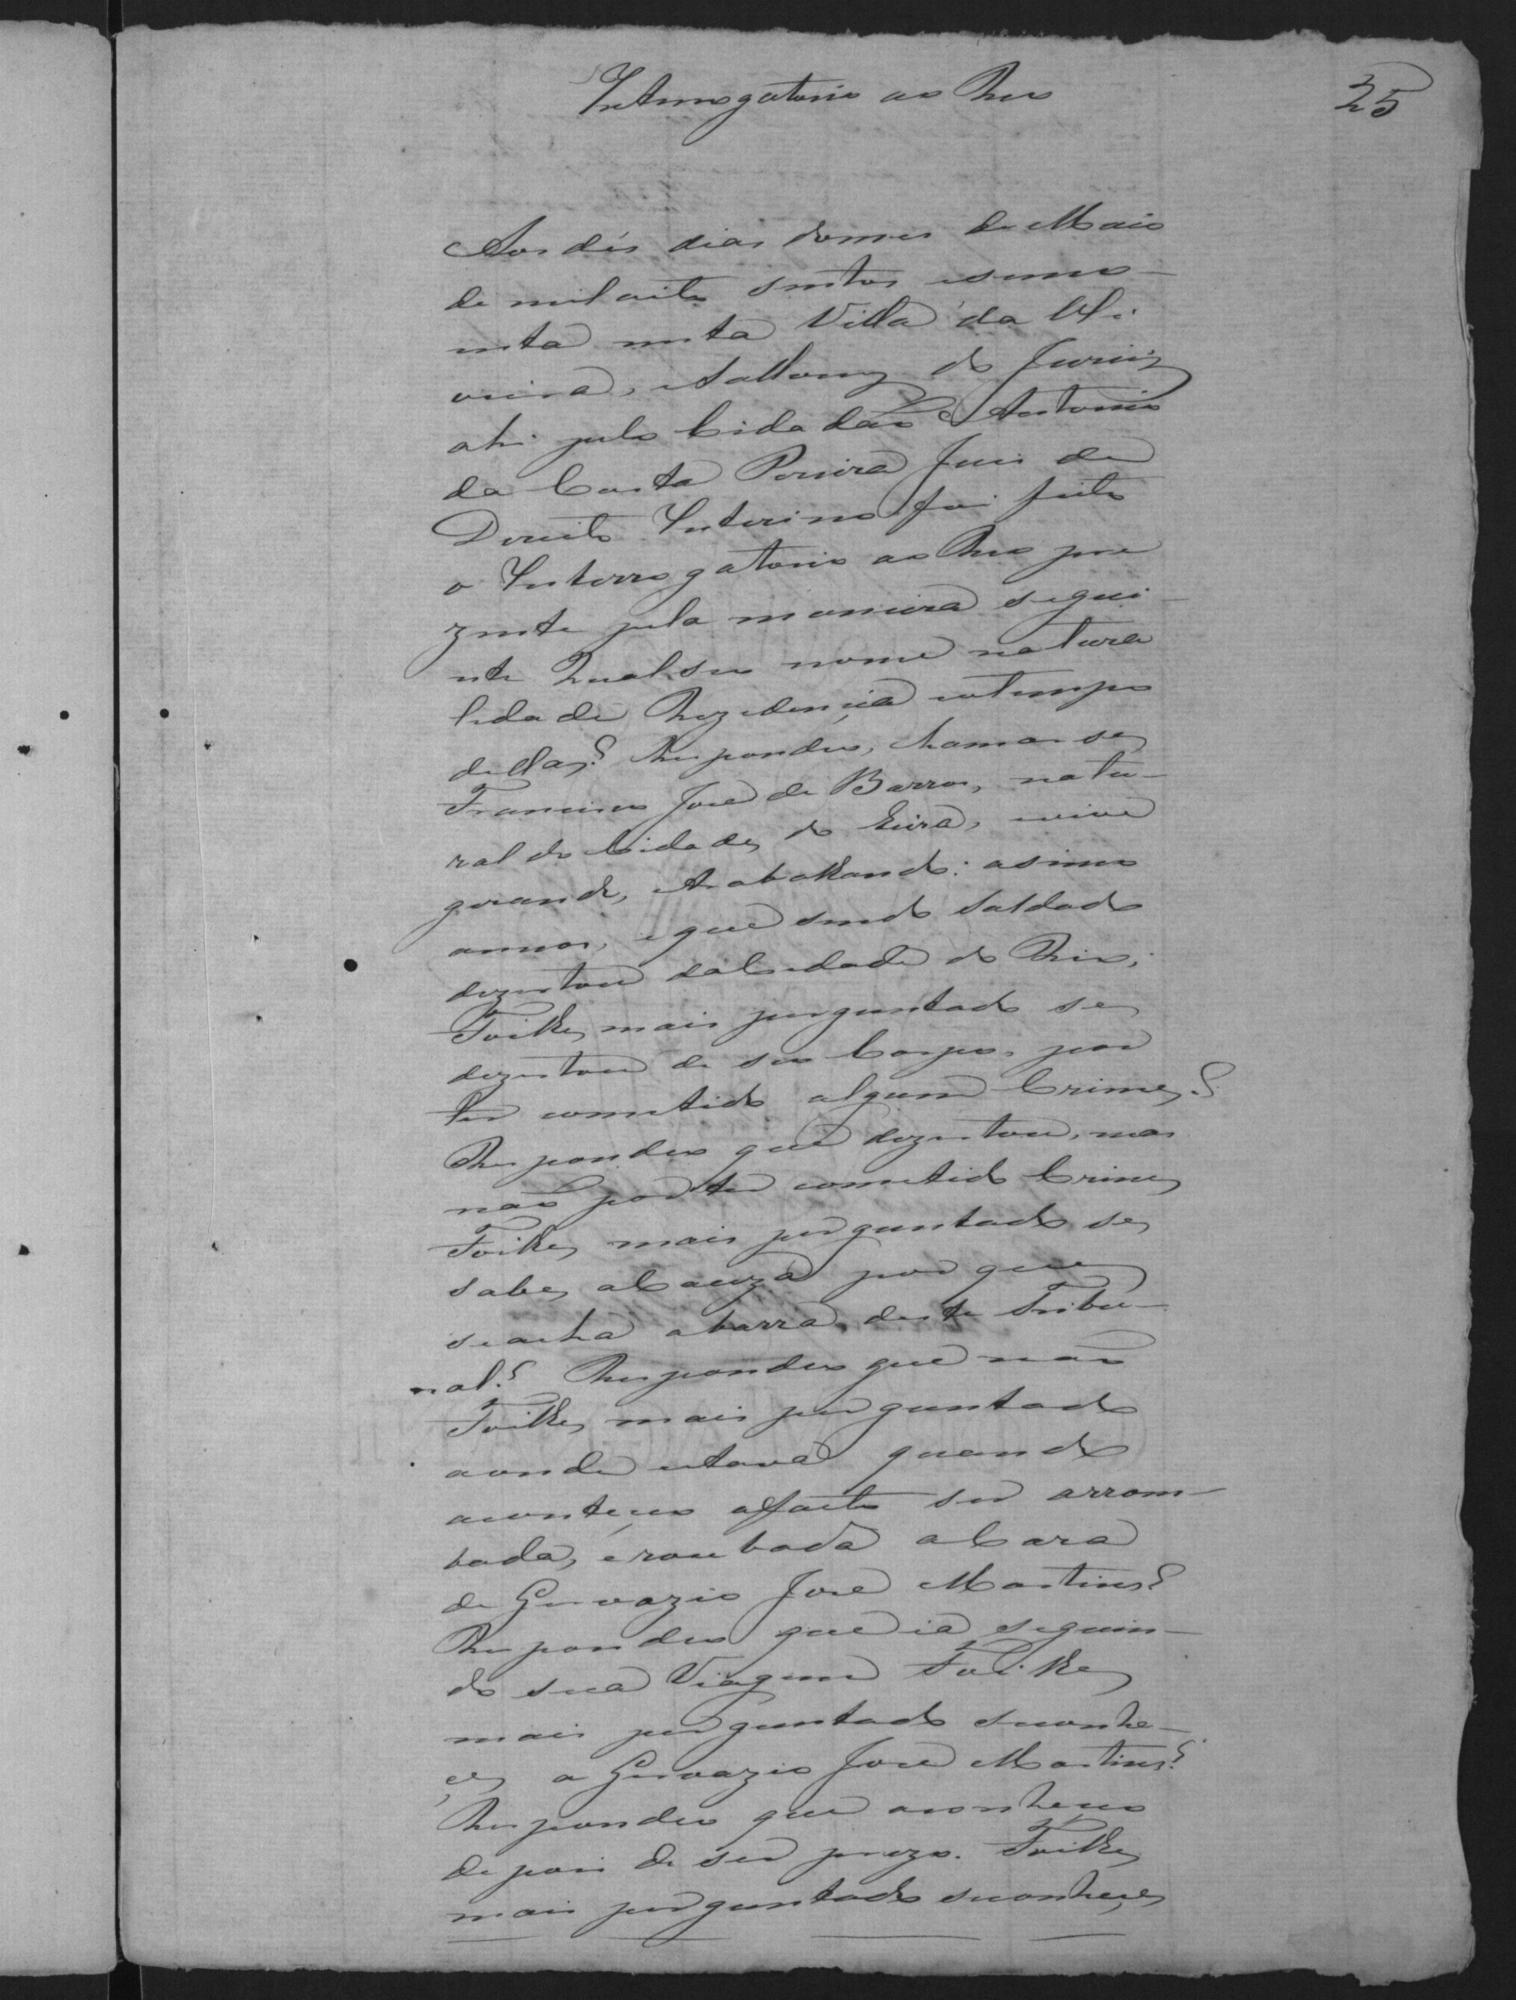 Interrogatorio ao Reo
25
Aos dés dias domes de Maio
de mil oito sentos esece-
enta nesta Villa da
na Salla do Juri
ahi pelo Cidadão Antonio
da Costa Pereira Juis de
Dereito Interino foi feito
o Interrogatorio ao Reo pre
zente pela maneira segui-
nte Qual seu nome natura
lidade Rezidencia eotempo
dellas? Respondeo, chamar se
Francisco José de Barros, natu-
ral do Cidade do , evive
girando, etrabalhando: asinco
annos, eque sendo Saldado
dezertou dacidade do Rio,
Foilhe mais perguntado se
dezertou de seo Corpo, por
ter cometido algum Crime?
Respondeo que dezertou, mas
não por ter cometido Crime
Foilhe mais perguntado se
sabe aCauza por que
seacha abarra deste Tribu-
nal? Respondeo que não
Foilhe mais perguntado
aonde estava quando
aconteceo ofacto ser arrom-
bada, éroubada aCaza
de Gervazio José Martins?
Respondeo que ia seguin-
do sua Viagem Foilhe
mais perguntado seconhe-
ce a Gervazio José Martins?
Respondeo que oconheceo
depois de ser prezo. Foilhe
mais perguntado seconhece